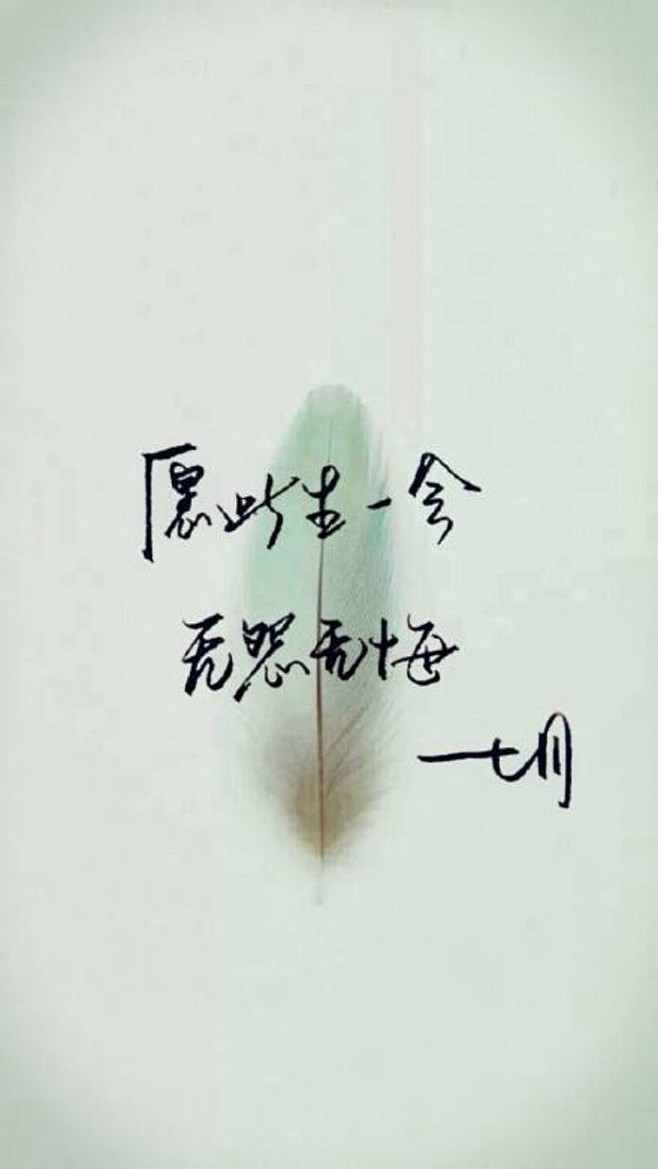 愿此生一会
无怨无悔
七月